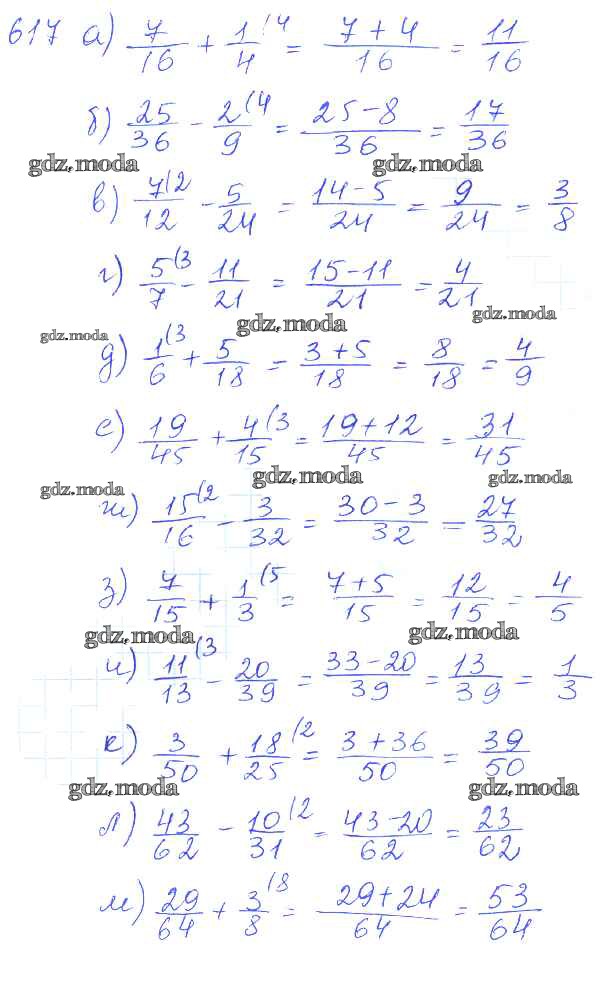 617 а) 7/16 + 1/4 (4 = 7+4/16 = 11/16
б) 25/36 - 2/9 (4 = 25-8/36 = 17/36
gdz.moda gdz.moda
в) 7/12 (2 - 5/24 = 14-5/24 = 9/24 = 3/8
г) 5/7 (3 - 11/21 = 15-11/21 = 4/21
gdz.moda gdz.moda
gdz.moda
д) 1/6 (3 + 5/18 = 3+5/18 = 8/18 = 4/9
е) 19/45 + 4/15 (3 = 19+12/45 = 31/45
gdz.moda gdz.moda gdz.moda
ж) 15/16 (2 - 3/32 = 30-3/32 = 27/32
з) 7/15 + 1/3 (5 = 7+5/15 = 12/15 = 4/5
gdz.moda gdz.moda
и) 11/13 (3 - 20/39 = 33-20/39 = 13/39 = 1/3
к) 3/50 + 18/25 (2 = 3+36/50 = 39/50
gdz.moda gdz.moda
л) 43/62 - 10/31 (2 = 43-20/62 = 23/62
м) 29/64 + 3/8 (8 = 29+24/64 = 53/64